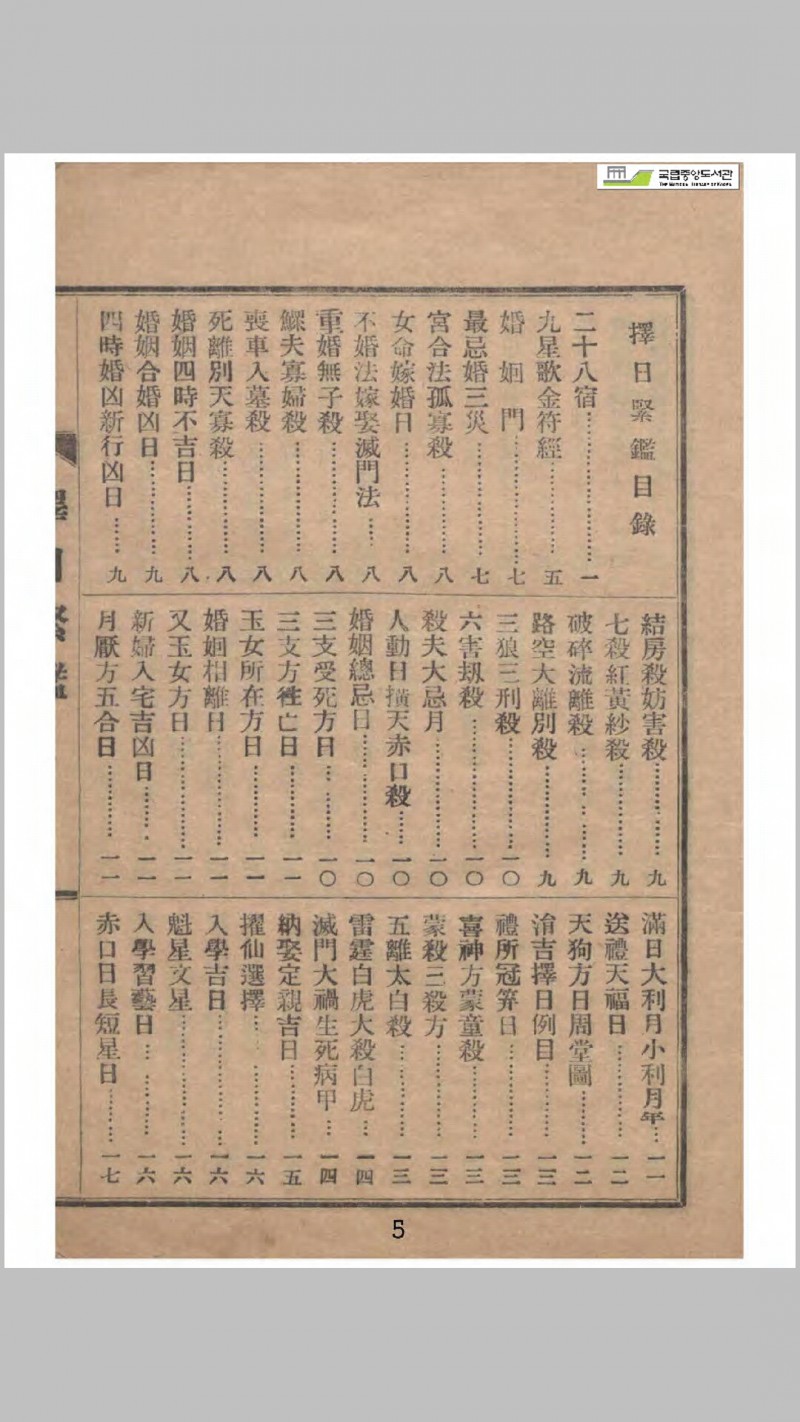 국립중앙도서관
THE NATIONAL LIBRARY OF KOREA
擇日緊鑑目錄
二十八宿……一
九星歌金符經……五
婚姻門……七
最忌婚三災……七
宮合法孤寡殺……八
女命嫁婚日……八
不婚法嫁娶滅門法……八
重婚無子殺……八
鰥夫寡婦殺……八
喪車入墓殺……八
死離別天寡殺……八
婚姻四時不吉日……八
婚姻合婚凶日……九
四時婚凶新行凶日……九
結房殺妨害殺……九
七殺紅黃紗殺……九
破碎流離殺……九
路空大離別殺……九
三狼三刑殺……一〇
六害刼殺……一〇
殺夫大忌月……一〇
人動日橫天赤口殺……一〇
婚姻總忌日……一〇
三支受死方日……一〇
三支方徃亡日……一一
玉女所在方日……一一
婚姻相離日……一一
又玉女方日……一一
新婦入宅吉凶日……一一
月厭方五合日……一一
滿日大利月小利月年……一一
送禮天福日……一二
天狗方日周堂圖……一二
洽吉擇日例目……一三
禮所冠笄日……一三
喜神方蒙童殺……一三
蒙殺三殺方……一三
五離太白殺……一三
雷霆白虎大殺白虎……一四
滅門大禍生死病甲……一四
納娶定親吉日……一五
擢仙選擇……一六
入學吉日……一六
魁星文星……一六
入學習藝日……一六
赤口日長短星日……一七
擇日緊鑑
5